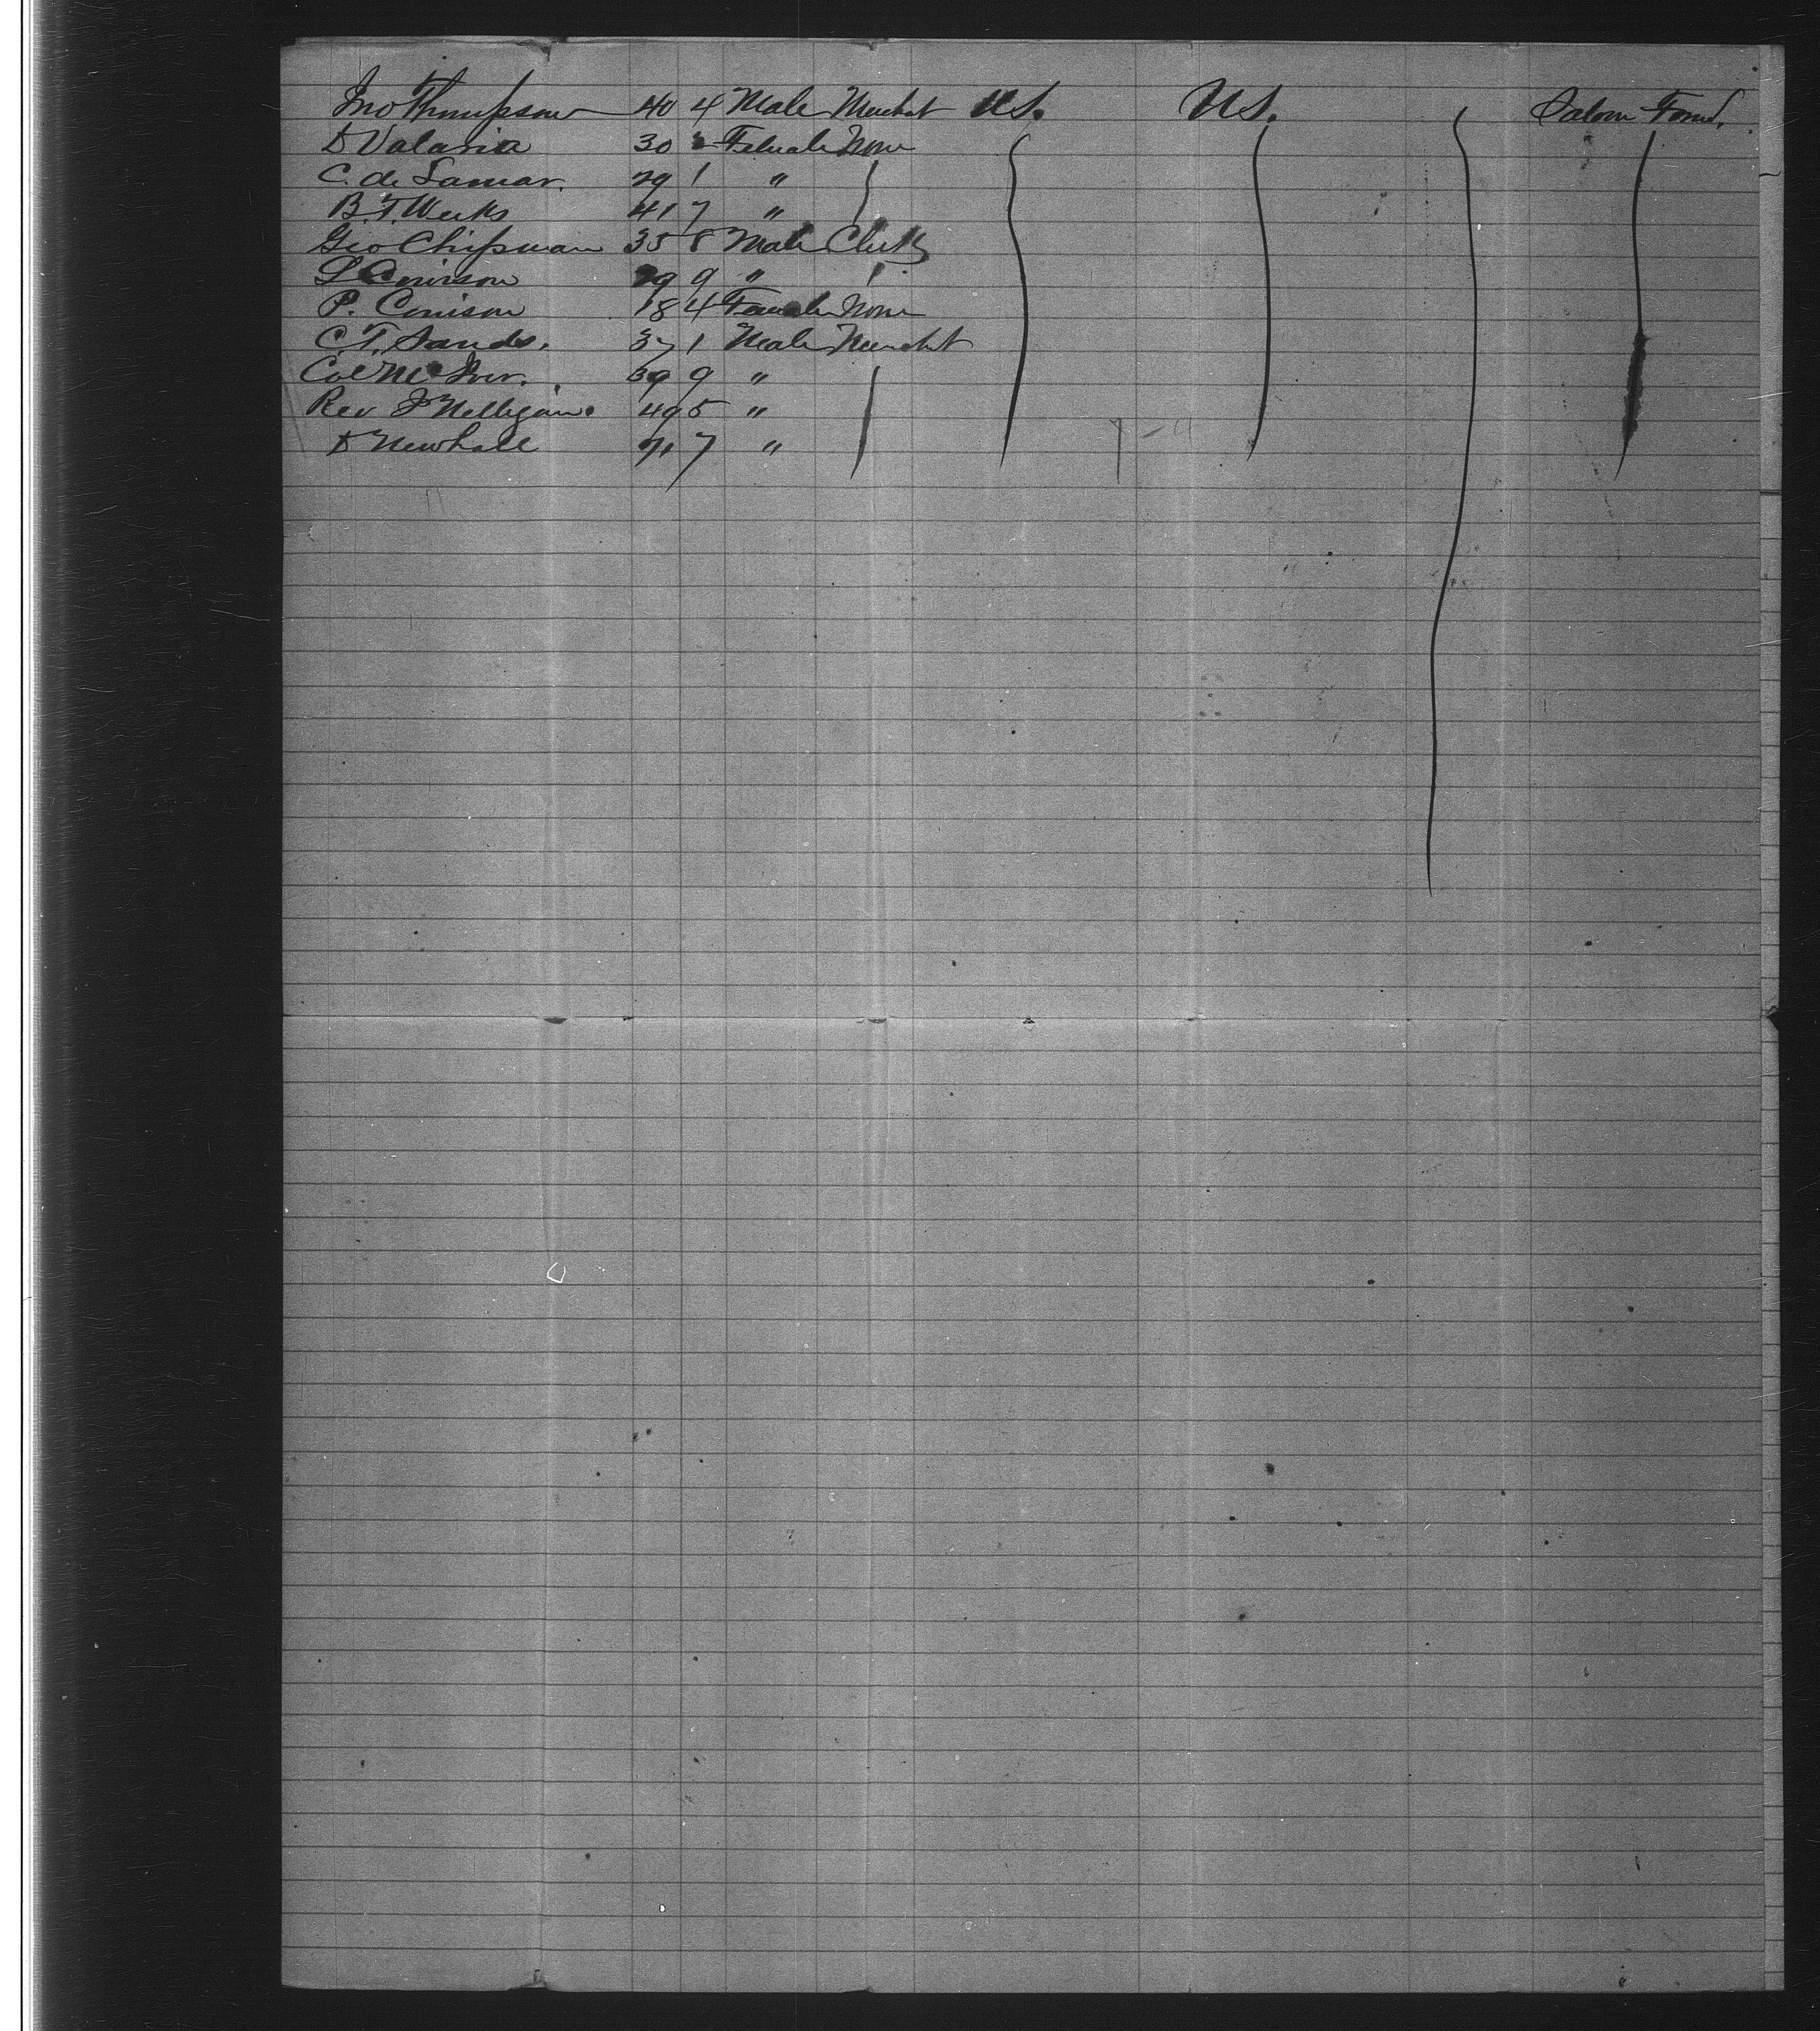 Jno Thompson 40 4 Male Merchat U.S. U.S. Saloon Forwd.
D Valaria 30 Female None
C. de Lamar. 29 1 "
B. T. Weeks 41 7 "
Geo Chipman 35 8 Male Clerk
L 29 9 " "
P. Conison 18 4 Female None
C. T. Sands. 37 1 Male Merchat
Col Mc Iver. 39 9 "
Rev J Nelligan. 49 5 "
D Newhall 71 7 "